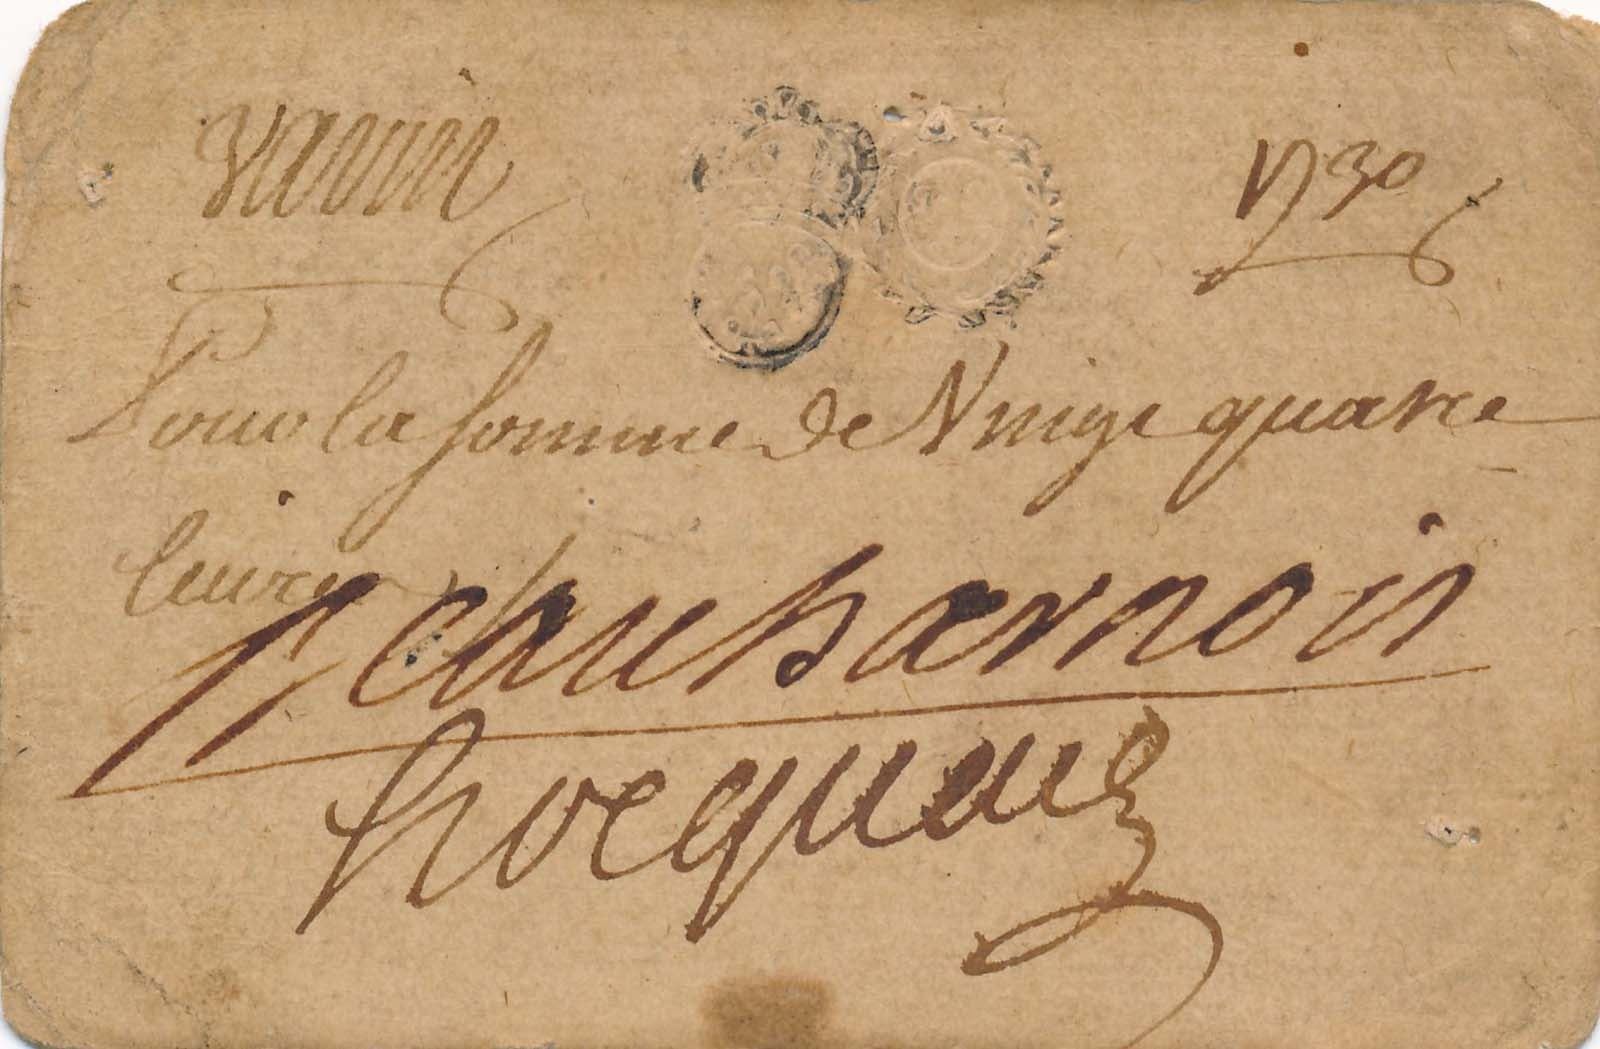 varin 1730
Pour la somme de Vingt quatre
Livres
Beauharnois
hocquart